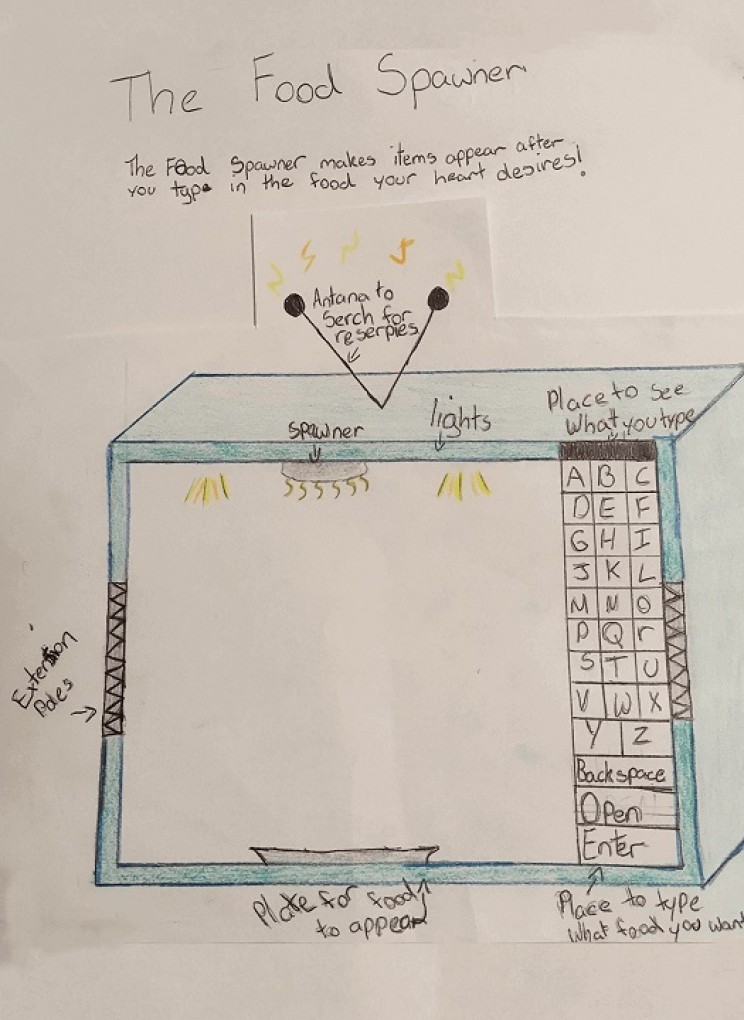 The Food Spawner
The Food Spawner makes items appear after
you type in the food your heart desires!
Antana to
Serch for
reserpies
Place to See
What you type
lights
spawner
A B C
D E F
G H I
J K L
M N O
P Q r
S T U
V W X
Y Z
Backspace
Open
Enter
Extension
Poles
Plate for food
to appear
Place to type
What food you want